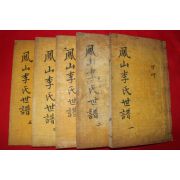 鳳山李氏世譜 一
鳳山李氏世譜 二
鳳山李氏世譜
鳳山李氏世譜
鳳山李氏世譜